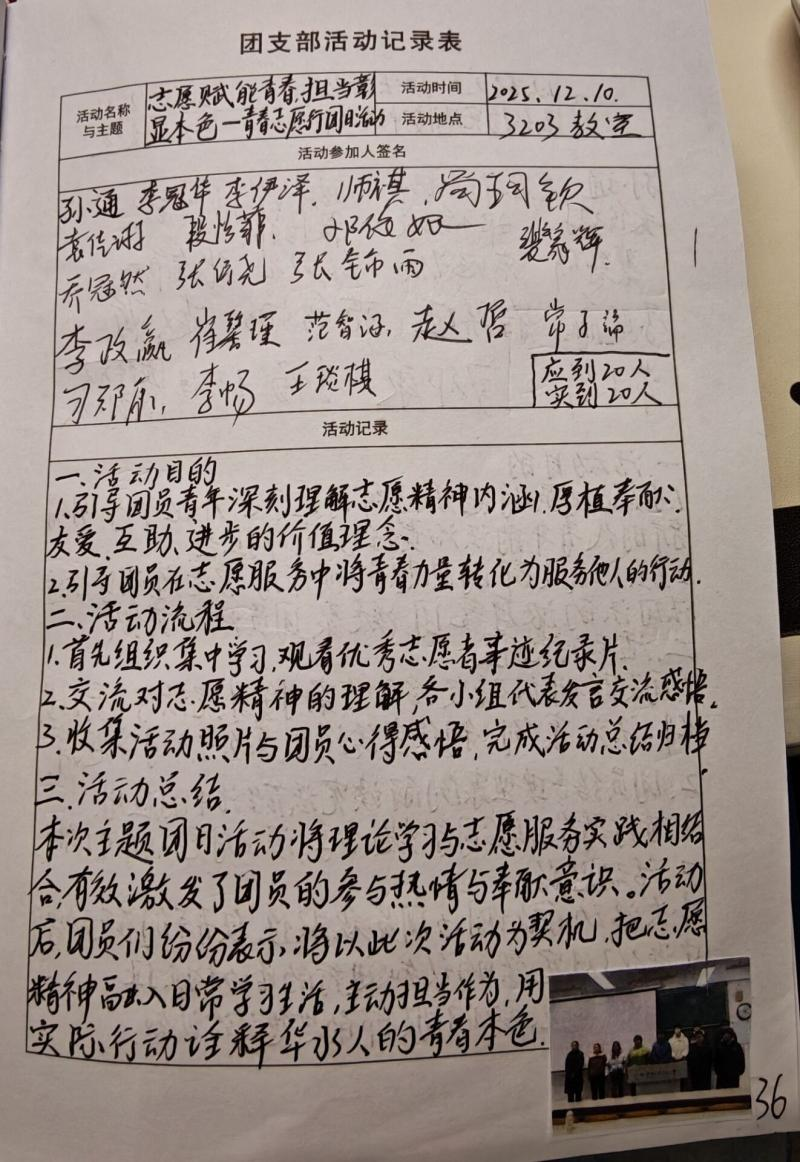 团支部活动记录表
活动名称与主题
志愿赋能青春,担当彰
显本色—青春志愿行团日活动
活动时间
2025.12.10.
活动地点
3203教室
活动参加人签名
孙通 李冠华 李伊泽. 师祺.
乔冠然 张
李政瀛 范智 赵 哲 常子
李畅 王琰棋
应到20人
实到20人
活动记录
一、活动目的
1.引导团员青年深刻理解志愿精神内涵,厚植奉献、
友爱、互助、进步的价值理念.
2.引导团员在志愿服务中将青春力量转化为服务他人的行动.
二、活动流程
1.首先组织集中学习,观看优秀志愿者事迹纪录片.
2.交流对志愿精神的理解,各小组代表发言交流感悟。
3.收集活动照片与团员心得感悟,完成活动总结归档.
三.活动总结.
本次主题团日活动将理论学习与志愿服务实践相结
合,有效激发了团员的参与热情与奉献意识。活动
后,团员们纷纷表示,将以此次活动为契机,把志愿
精神融入日常学习生活,主动担当作为,用
实际行动诠释华水人的青春本色.
36